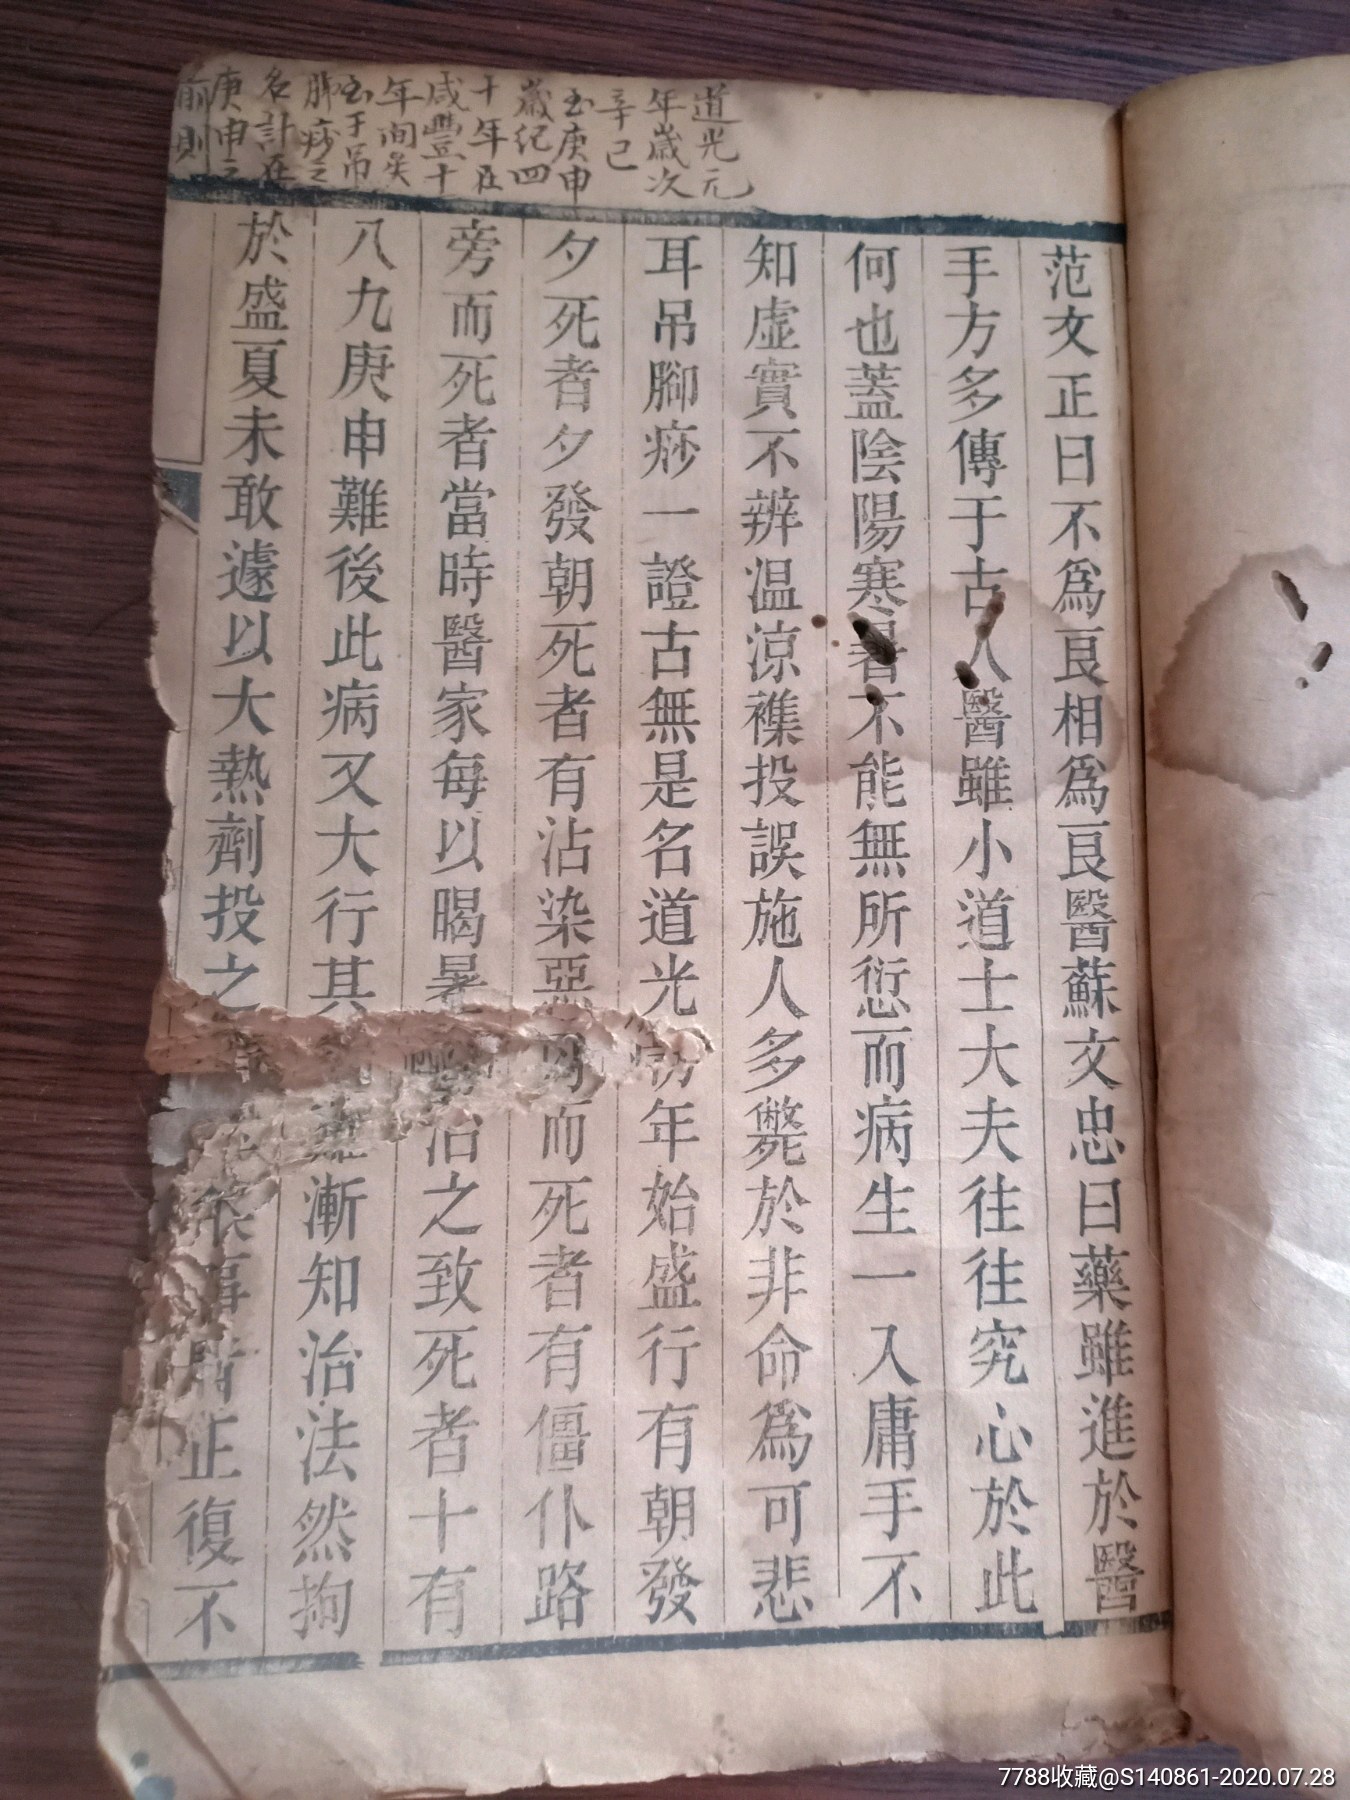 道光元
年歲次
辛巳
至庚申
歲紀四
十年在
咸豐十
年間矣
至于吊
脚痧之
名計在
庚申之
前則
范文正曰不爲良相爲良醫蘇文忠曰藥雖進於醫
手方多傳于古人醫雖小道士大夫往往究心於此
何也蓋陰陽寒暑不能無所愆而病生一入庸手不
知虛實不辨温涼襍投誤施人多斃於非命爲可悲
耳吊腳痧一證古無是名道光初年始盛行有朝發
夕死者夕發朝死者有沾染惡而死者有僵仆路
旁而死者當時醫家每以暍暑治之致死者十有
八九庚申難後此病又大行其漸知治法然拘
於盛夏未敢遽以大熱劑投之正復不
7788收藏@S140861-2020.07.28